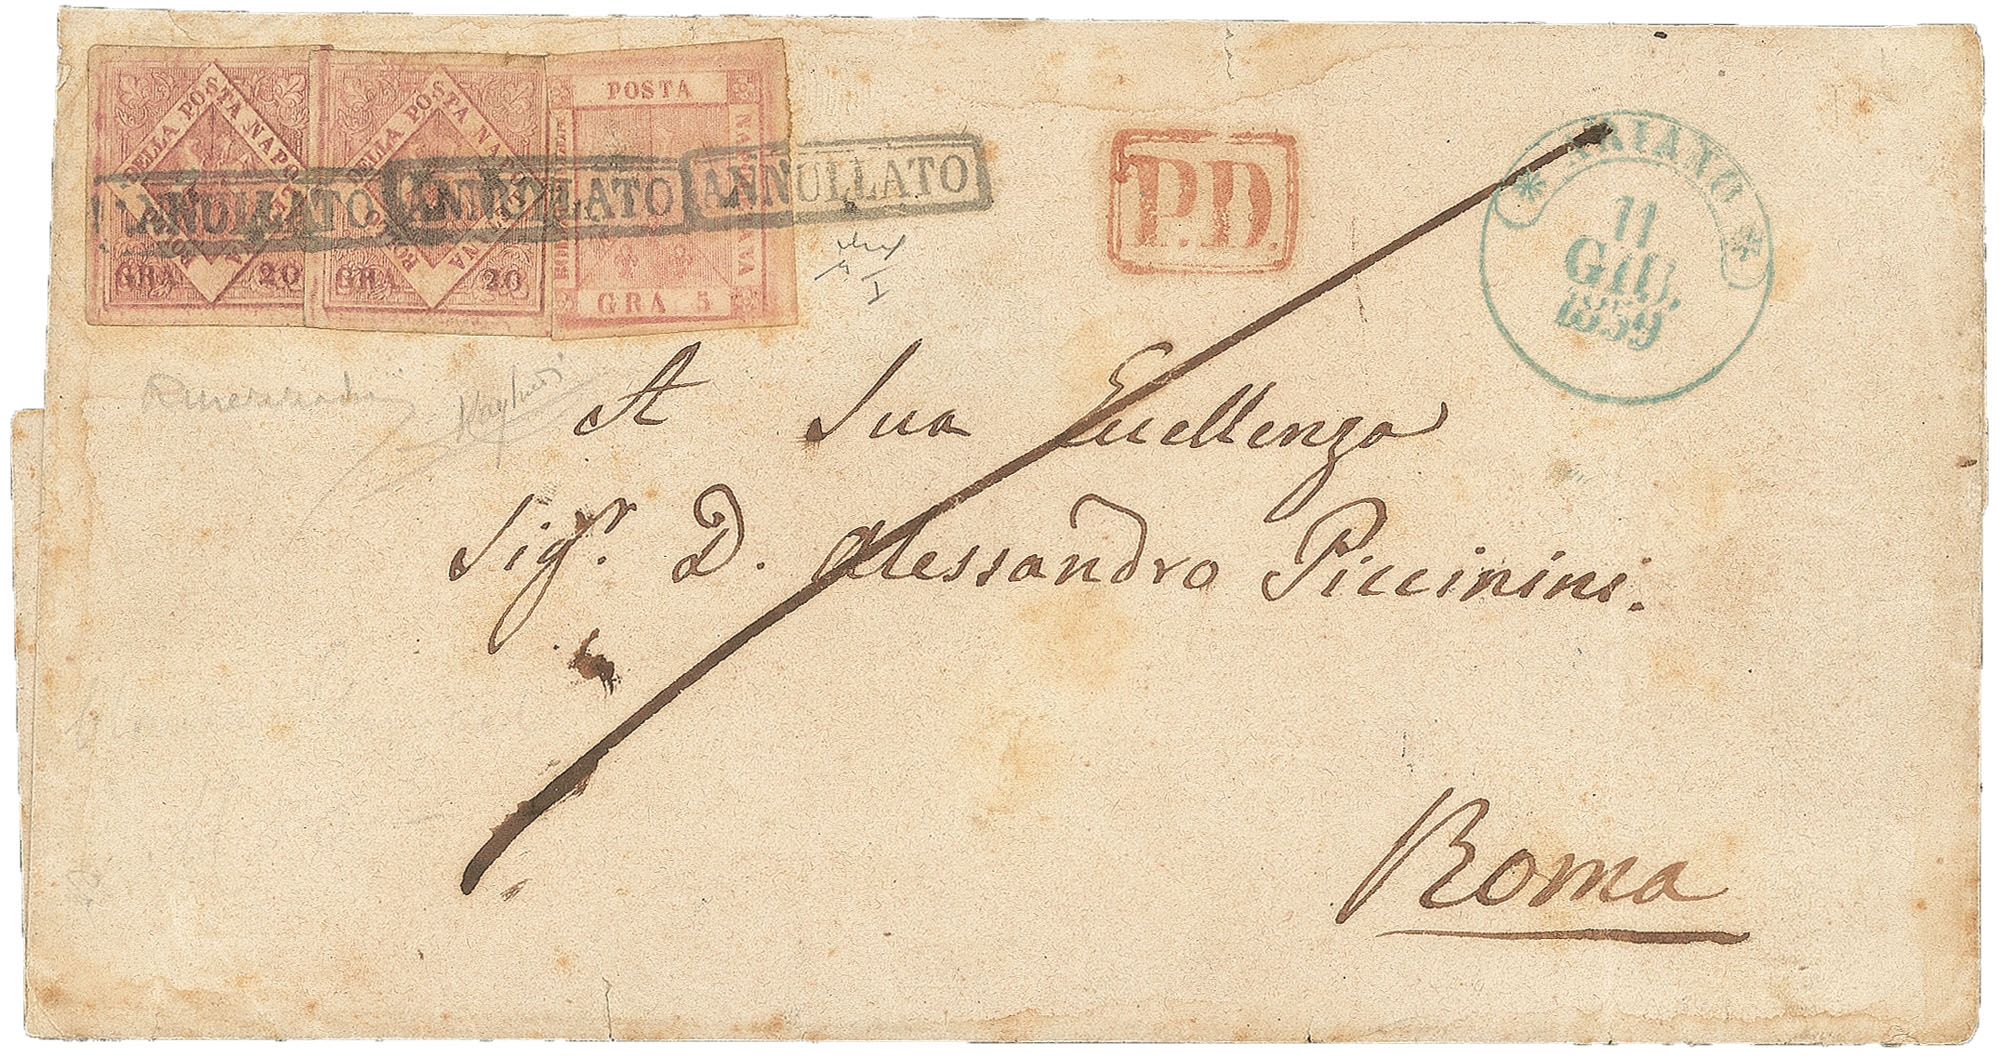 BOLLO DELLA POSTA NAPOLETANA
GRA 20
BOLLO DELLA POSTA NAPOLETANA
GRA 20
POSTA
GRA 5
ANNULLATO
ANNULLATO
ANNULLATO
P.D.
ARIANO
11
GIU.
1859
A Sua Eccellenza
Sigr. D. Alessandro Piccinini.
Roma